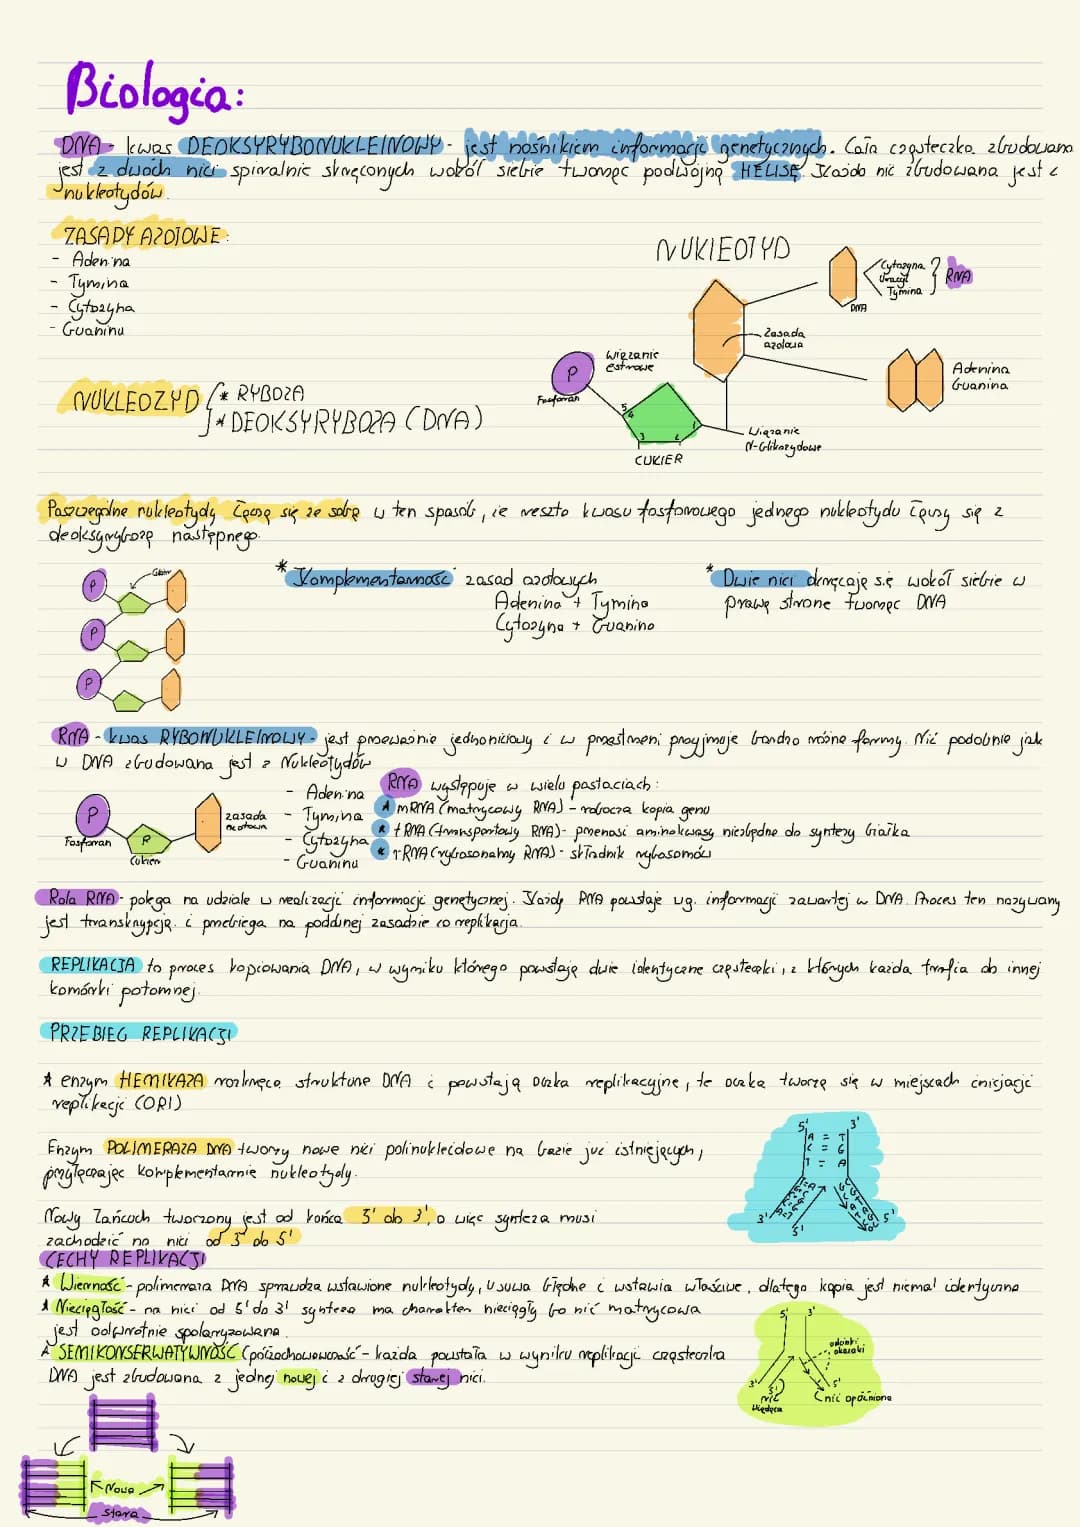 Biologia:
DNA - kwas DEOKSYRYBONUKLEINOWY - jest nośnikiem informacji genetycznych. Cała cząsteczka zbudowana
jest z dwóch nici spiralnie skręconych wokół siebie tworząc podwójną HELISĘ. Każda nić zbudowana jest z
nukleotydów.
ZASADY AZOTOWE:
- Adenina
- Tymina
- Cytozyna
- Guanina
NUKLEOTYD
Cytozyna
Uracyl
Tymina
RNA
DNA
Zasada
azotowa
Adenina
Guanina
Wiązanie
estrowe
P
Fosforan
5
4
3
2
1
CUKIER
Wiązanie
N-Glikozydowe
NUKLEOZYD
* RYBOZA
* DEOKSYRYBOZA (DNA)
Poszczególne nukleotydy łączą się ze sobą w ten sposób, że reszta kwasu fosforowego jednego nukleotydu łączy się z
deoksyrybozą następnego.
P
P
P
* Komplementarność zasad azotowych
Adenina + Tymina
Cytozyna + Guanina
* Dwie nici skręcają się wokół siebie w
prawą stronę tworząc DNA
RNA - kwas RYBONUKLEINOWY - jest przeważnie jednoniciowy i w przestrzeni przyjmuje bardzo różne formy. Nić podobnie jak
w DNA zbudowana jest z Nukleotydów
P
Fosforan
R
Cukier
zasada
azotowa
- Adenina
- Tymina
- Cytozyna
- Guanina
RNA występuje w wielu postaciach:
* mRNA (matrycowy RNA) - robocza kopia genu
* tRNA (transportowy RNA) - przenosi aminokwasy niezbędne do syntezy białka
* r-RNA (rybosomalny RNA) - składnik rybosomów
Rola RNA - polega na udziale w realizacji informacji genetycznej. Każdy RNA powstaje wg. informacji zawartej w DNA. Proces ten nazywany
jest transkrypcją. i przebiega na podobnej zasadzie co replikacja.
REPLIKACJA to proces kopiowania DNA, w wyniku którego powstają dwie identyczne cząsteczki, z których każda trafia do innej
komórki potomnej.
PRZEBIEG REPLIKACJI
* enzym HEMIKAZA rozkręca strukturę DNA i powstają oczka replikacyjne, te oczka tworzą się w miejscach inicjacji
replikacji (ORI)
Enzym POLIMERAZA DNA tworzy nowe nici polinukleidowe na bazie już istniejących,
przyłączając komplementarnie nukleotydy.
Nowy łańcuch tworzony jest od końca 5' do 3', a więc synteza musi
zachodzić na nici od 3' do 5'
5'
3'
A = T
C = G
T = A
3'
5'
5'
CECHY REPLIKACJI
* Wierność - polimeraza DNA sprawdza wstawione nukleotydy, usuwa błędne i wstawia właściwe, dlatego kopia jest niemal identyczna
* Nieciągłość - na nici od 5' do 3' synteza ma charakter nieciągły bo nić matrycowa
jest odwrotnie spolaryzowana.
* SEMIKONSERWATYWNOŚĆ (półzachowawczość - każda powstała w wyniku replikacji cząsteczka
DNA jest zbudowana z jednej nowej i z drugiej starej nici.
5'
3'
odcinki
okazaki
3'
3'
5'
nić
wiodąca
nić opóźniona
Nowa
stara